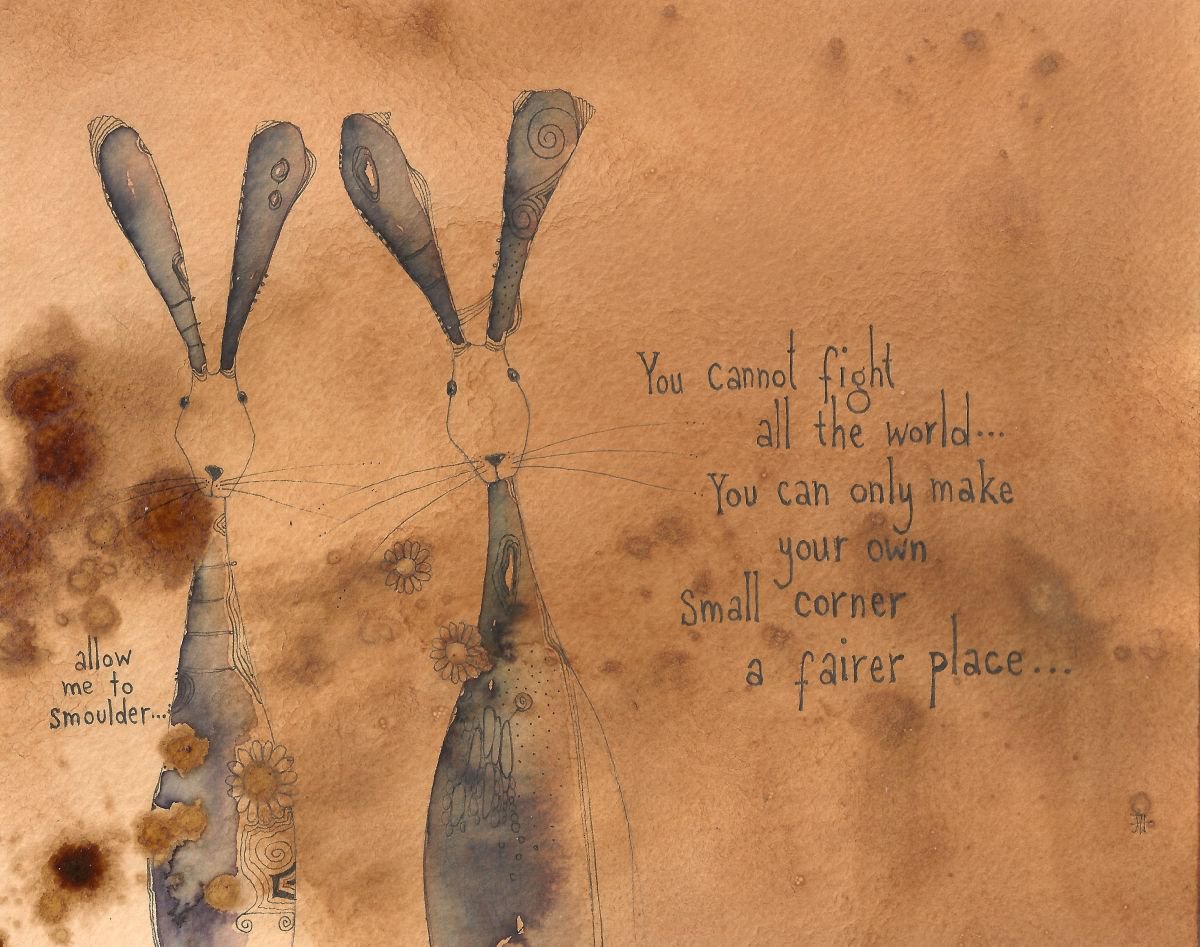 You cannot fight
all the world...
You can only make
your own
small corner
a fairer place...
allow
me to
smoulder...